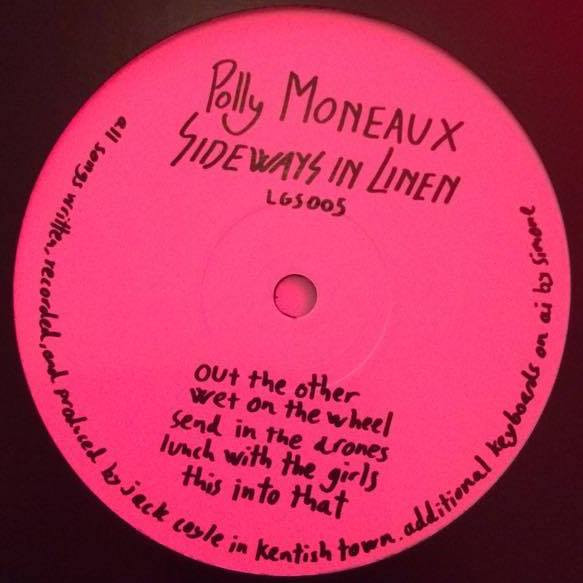 Polly MONEAUX
SIDEWAYS IN LINEN
LGS005
out the other
wet on the wheel
send in the drones
lunch with the girls
this into that
all songs written, recorded, and produced by jack coyle in kentish town. additional keyboards on ai by simone